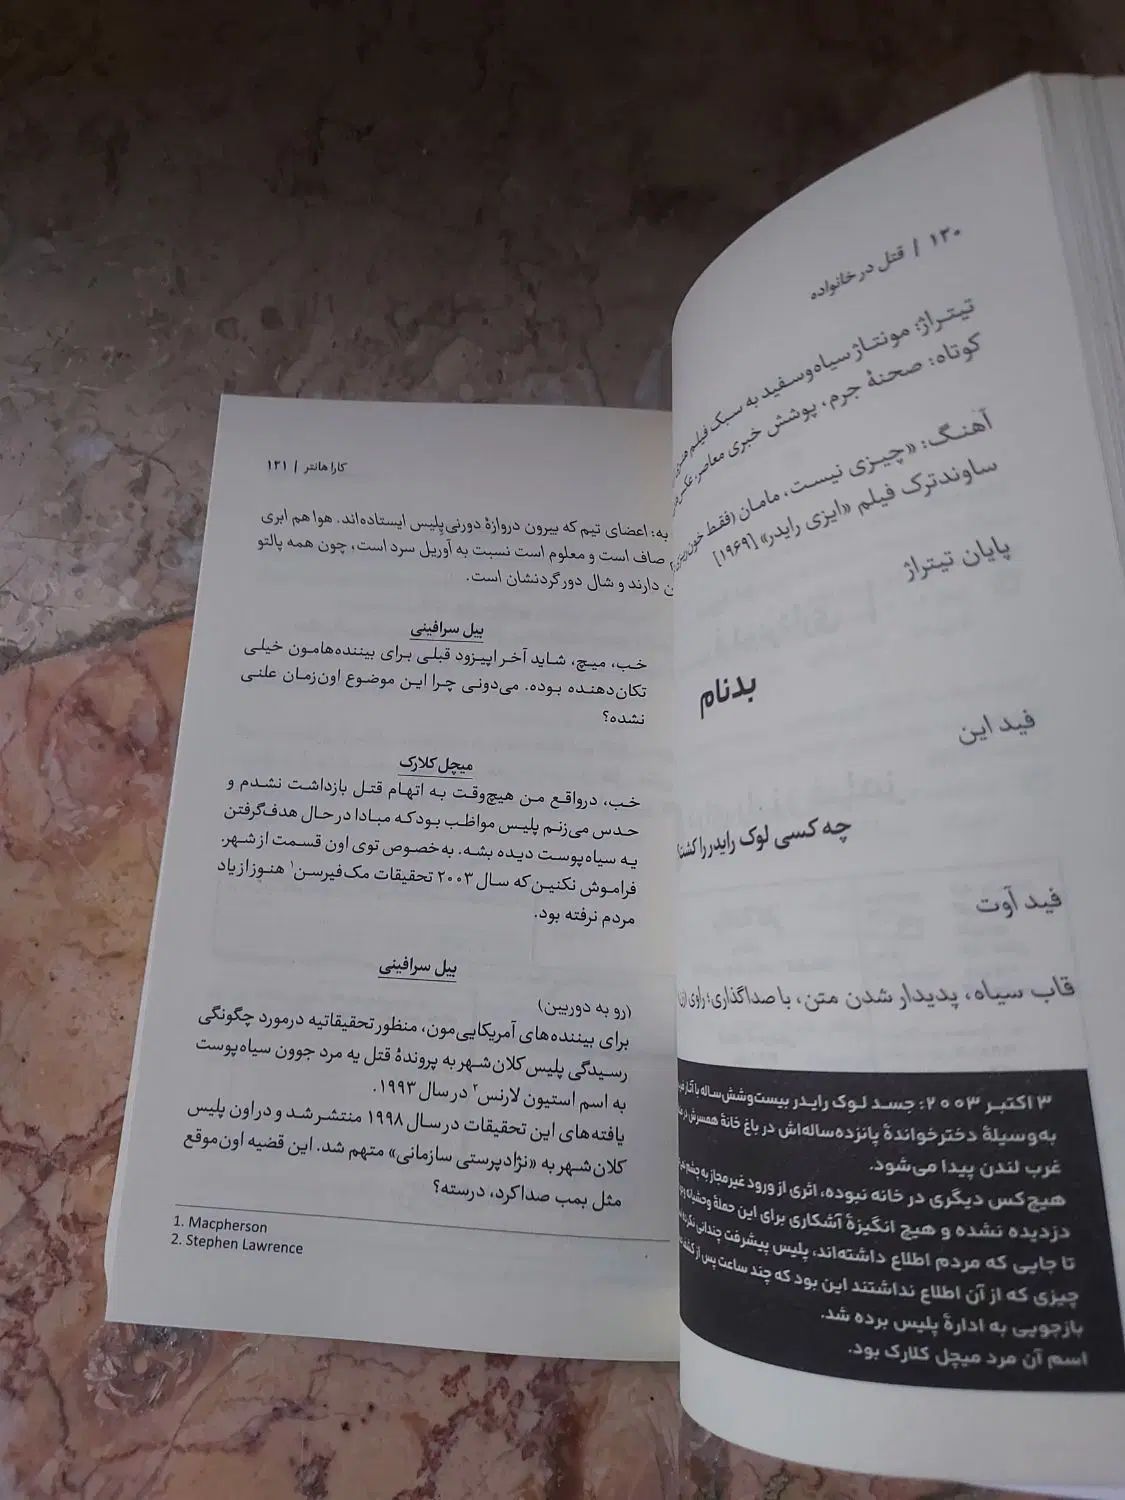 ۱۲۰ | قتل در خانواده
تیتراژ: مونتاژ سیاه‌وسفید به سبک فیلم
کوتاه: صحنهٔ جرم، پوشش خبری معاصر،
آهنگ: «چیزی نیست، مامان (فقط خون
ساوندترک فیلم «ایزی رایدر» [۱۹۶۹]
پایان تیتراژ
بدنام
فید این
چه کسی لوک رایدر را
فید آوت
قاب سیاه، پدیدار شدن متن، با صداگذاری؛ راوی
۳ اکتبر ۲۰۰۳: جسد لوک رایدر بیست‌وشش‌ساله با آثار
به‌وسیلهٔ دخترخواندهٔ پانزده‌ساله‌اش در باغ خانهٔ همسرش در
غرب لندن پیدا می‌شود.
هیچ‌کس دیگری در خانه نبوده، اثری از ورود غیرمجاز به چشم
دزدیده نشده و هیچ انگیزهٔ آشکاری برای این حملهٔ وحشیانه
تا جایی که مردم اطلاع داشته‌اند، پلیس پیشرفت چندانی
چیزی که از آن اطلاع نداشتند این بود که چند ساعت پس از
بازجویی به ادارهٔ پلیس برده شد.
اسم آن مرد میچل کلارک بود.
کارا هانتر | ۱۲۱
به: اعضای تیم که بیرون دروازهٔ دورنی پلیس ایستاده‌اند. هوا هم ابری
صاف است و معلوم است نسبت به آوریل سرد است، چون همه پالتو
دارند و شال دور گردنشان است.
بیل سرافینی
خب، میچ، شاید آخر اپیزود قبلی برای بیننده‌هامون خیلی
تکان‌دهنده بوده. می‌دونی چرا این موضوع اون‌زمان علنی
نشده؟
میچل کلارک
خب، درواقع من هیچ‌وقت به اتهام قتل بازداشت نشدم و
حدس می‌زنم پلیس مواظب بود که مبادا در حال هدف‌گرفتن
یه سیاه‌پوست دیده بشه. به‌خصوص توی اون قسمت از شهر.
فراموش نکنین که سال ۲۰۰۳ تحقیقات مک‌فیرسن۱ هنوز از یاد
مردم نرفته بود.
بیل سرافینی
(رو به دوربین)
برای بیننده‌های آمریکایی‌مون، منظور تحقیقاتیه درمورد چگونگی
رسیدگی پلیس کلان‌شهر به پروندهٔ قتل یه مرد جوون سیاه‌پوست
به اسم استیون لارنس۲ در سال ۱۹۹۳.
یافته‌های این تحقیقات در سال ۱۹۹۸ منتشر شد و در اون پلیس
کلان‌شهر به «نژادپرستی سازمانی» متهم شد. این قضیه اون‌موقع
مثل بمب صدا کرد، درسته؟
1. Macpherson
2. Stephen Lawrence